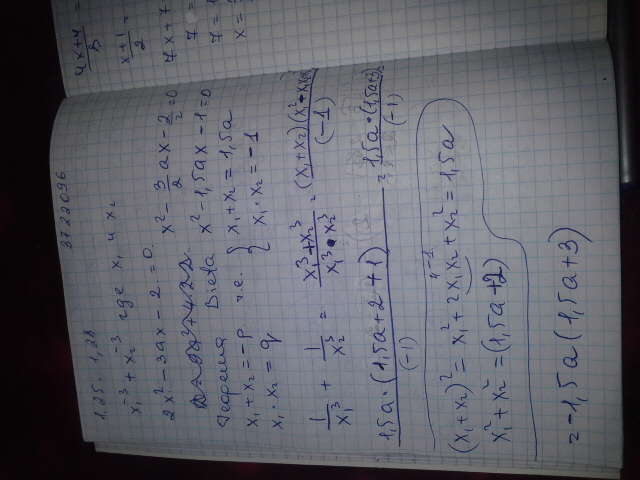 3722096
1.25. 1,28
x₁⁻³ + x₂⁻³ где x₁ и x₂
2x² - 3ax - 2 = 0.
x² - 3/2 ax - 2/2 = 0
Теорема Виета x² - 1,5ax - 1 = 0
x₁ + x₂ = -p т.е. { x₁ + x₂ = 1,5a
x₁ · x₂ = q { x₁ · x₂ = -1
1/x₁³ + 1/x₂³ = (x₁³ + x₂³)/(x₁³ · x₂³) = (x₁ + x₂)(x₁² - x₁x₂ /(-1)
1,5a · (1,5a + 2 + 1)/(-1) = 1,5a · (1,5a + 3)/(-1)
"-1
(x₁ + x₂)² = x₁² + 2x₁x₂ + x₂² = 1,5a
x₁² + x₂² = (1,5a + 2)
= -1,5a (1,5a + 3)
4x+4 =
x+1/2 =
7x + 7 =
7 =
7 =
x =